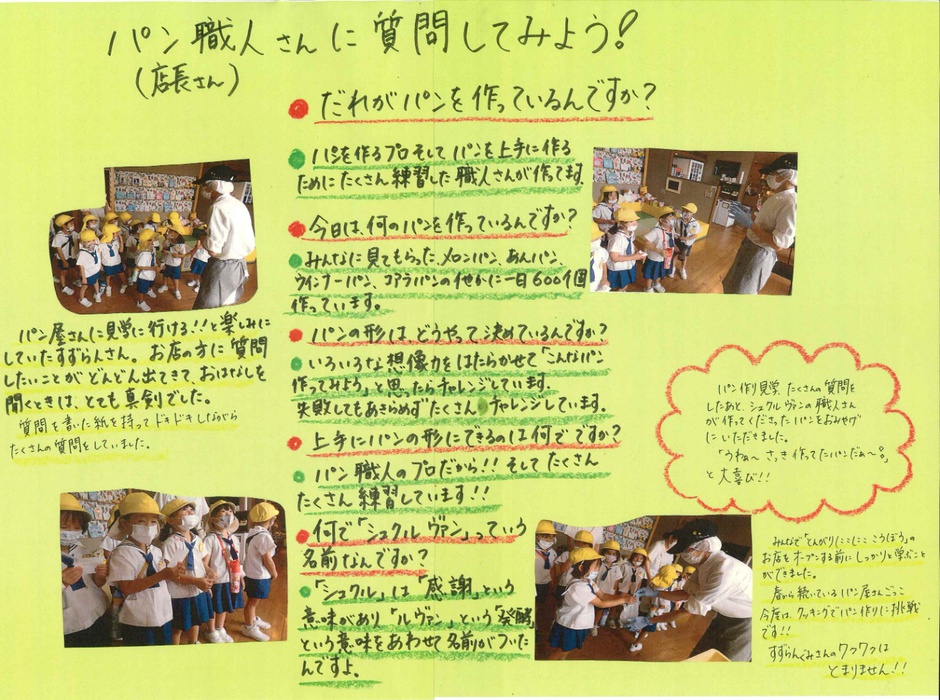 パン職人さんに質問してみよう!
(店長さん)
だれがパンを作っているんですか?
パンを作るプロそしてパンを上手に作る
ためにたくさん練習した職人さんが作てます。
今日は、何のパンを作っているんですか?
みんなに見てもらった、メロンパン、あんパン、
ウインナーパン、コアラパンの他かに一日600個
作っています。
パンの形はどうやって決めているんですか?
いろいろな想像力をはたらかせて「こんなパン
作ってみよう」と思ったらチャレンジしています。
失敗してもあきらめずたくさんチャレンジしています。
上手にパンの形にできるのは何でですか?
パン職人のプロだから!!そしてたくさん
たくさん練習しています!!
何で「シュクルヴァン」っていう
名前なんですか?
「シュクル」は「感謝」という
意味があり「ルヴァン」という「発酵」
という意味をあわせて名前がついた
んですよ。
パン屋さんに見学に行ける!!と楽しみに
していたすずらんさん。お店の方に質問
したいことがどんどん出てきて、おはなしを
聞くときは、とても真剣でした。
質問を書いた紙を持ってドキドキしながら
たくさんの質問をしていました。
パン作り見学、たくさんの質問を
したあと、シュクルヴァンの職人さん
が作ってくださったパンをおみやげ
にいただきました。
「うわぁ〜さっき作ってたパンだぁ〜。」
と大喜び!!
みんなで「とんがりにこにここうぼう」の
お店をオープンする前にしっかりと学ぶこと
ができました。
春から続いているパン屋さんごっこ
今度は、クッキングでパン作りに挑戦
です!!
すずらんぐみさんのワクワクは
とまりません!!